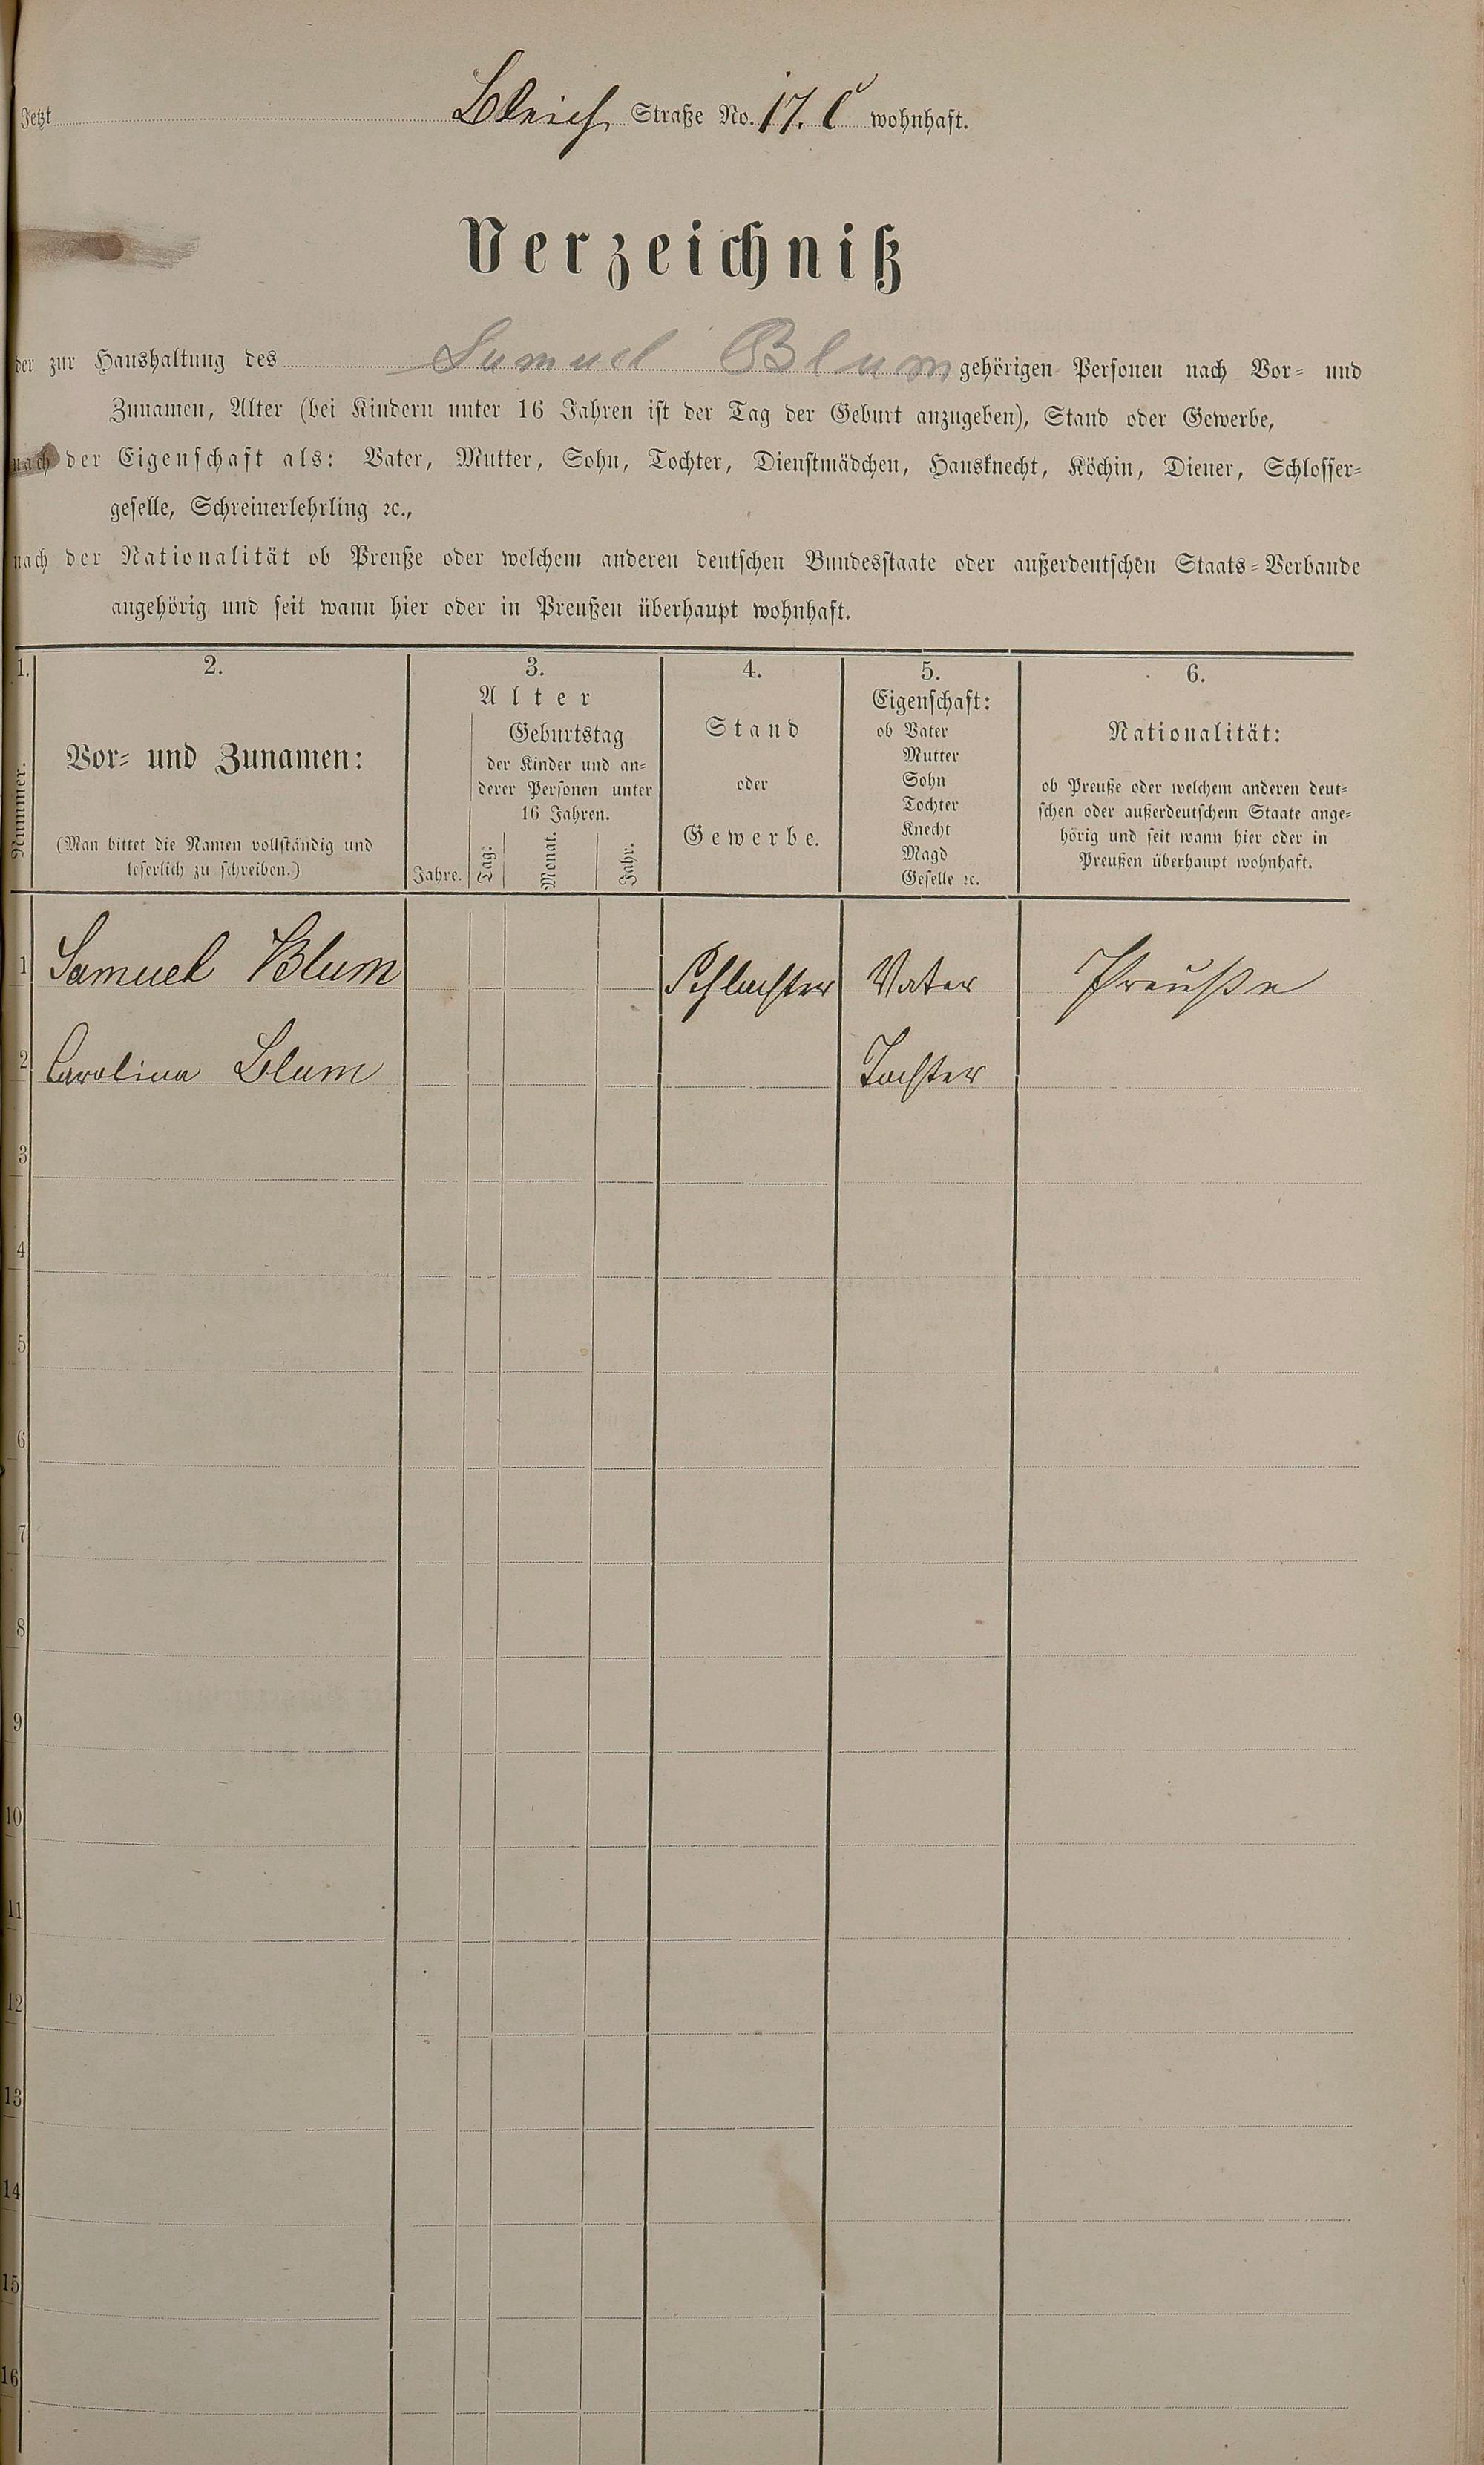 Jetzt Bleich Straße No. 17. C wohnhaft.
Verzeichniß
der zur Haushaltung des Samuel Blum gehörigen Personen nach Vor- und
Zunamen, Alter (bei Kindern unter 16 Jahren ist der Tag der Geburt anzugeben), Stand oder Gewerbe,
nach der Eigenschaft als: Vater, Mutter, Sohn, Tochter, Dienstmädchen, Hausknecht, Köchin, Diener, Schlosser-
geselle, Schreinerlehrling ꝛc.,
nach der Nationalität ob Preuße oder welchem anderen deutschen Bundesstaate oder außerdeutschen Staats-Verbande
angehörig und seit wann hier oder in Preußen überhaupt wohnhaft.
1.
Nummer.
2.
Vor- und Zunamen:
(Man bittet die Namen vollständig und
leserlich zu schreiben.)
3.
Alter
Geburtstag
der Kinder und an-
derer Personen unter
16 Jahren.
Jahre. Tag: Monat. Jahr.
4.
Stand
oder
Gewerbe.
5.
Eigenschaft:
ob Vater
Mutter
Sohn
Tochter
Knecht
Magd
Geselle ꝛc.
6.
Nationalität:
ob Preuße oder welchem anderen deut-
schen oder außerdeutschem Staate ange-
hörig und seit wann hier oder in
Preußen überhaupt wohnhaft.
1 Samuel Blum Schlachter Vater Preuße
2 Carolina Blum Tochter
3
4
5
6
7
8
9
10
11
12
13
14
15
16